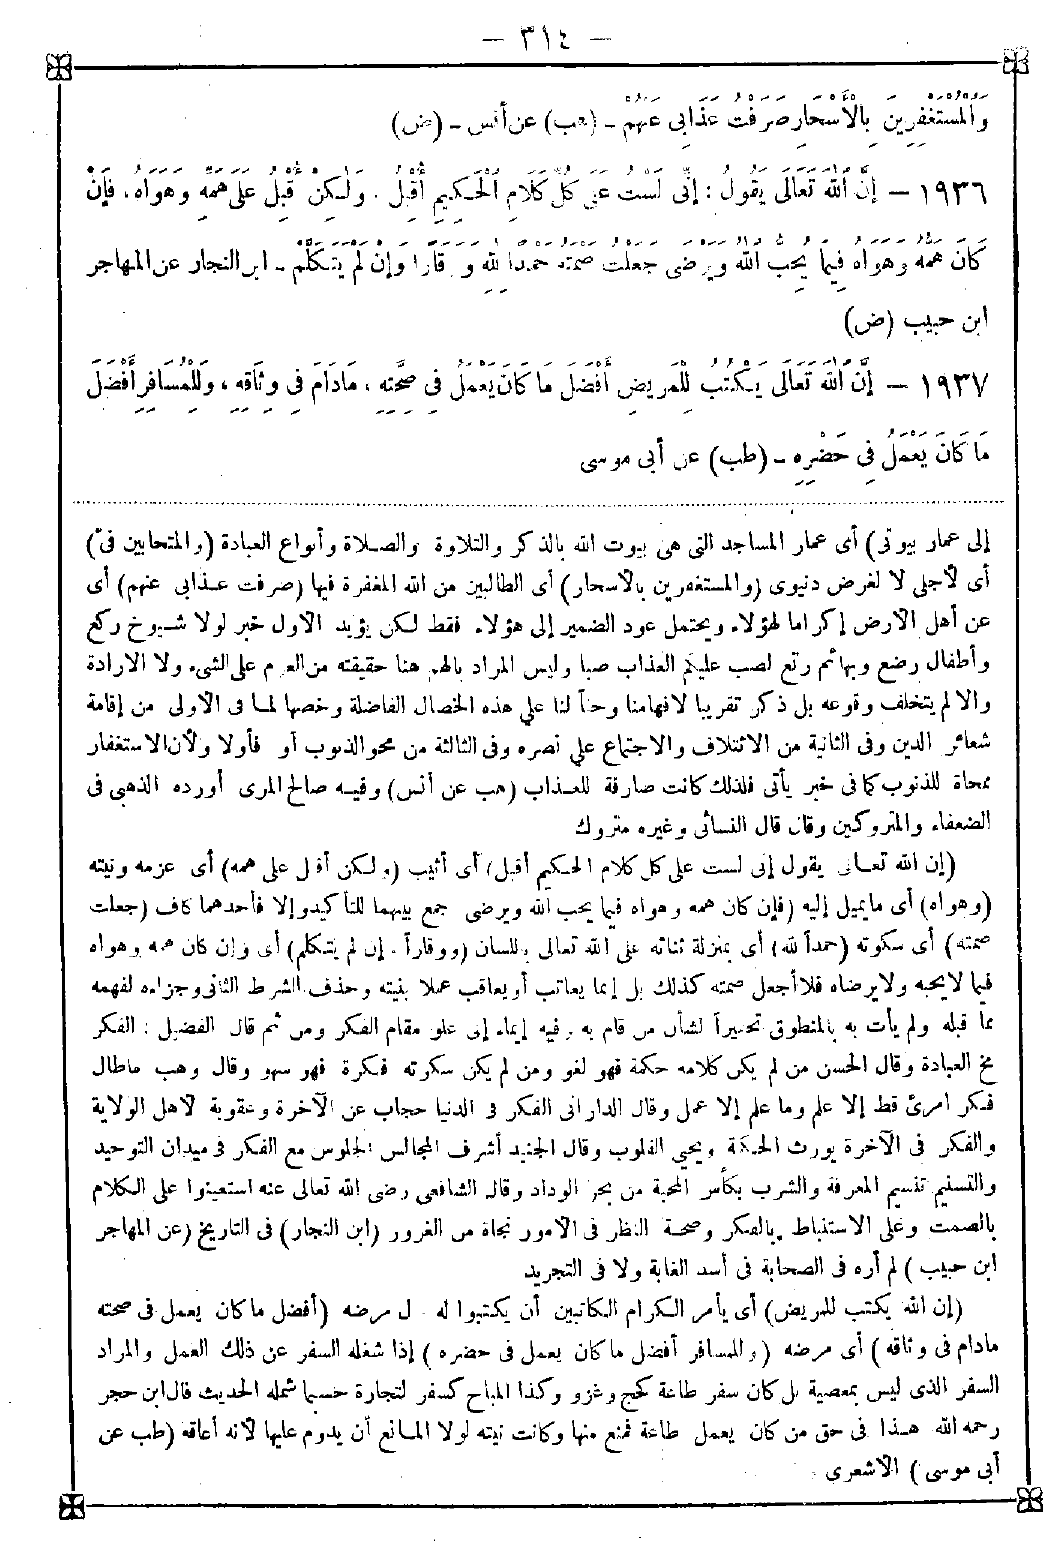 — ٣١٤ —
وَالْمُسْتَغْفِرِينَ بِالْأَسْحَارِ صَرَفْتُ عَذَابِي عَنْهُمْ - (هب) عن أنس - (ض)
١٩٣٦ - إِنَّ اللهَ تَعَالَى يَقُولُ : إِنِّى لَسْتُ عَلَى كُلِّ كَلَامِ الْحَكِيمِ أُقْبِلُ ، وَلٰكِنْ أُقْبِلُ عَلَى هَمِّهِ وَهَوَاهُ ، فَإِنْ
كَانَ هَمُّهُ وَهَوَاهُ فِيمَا يُحِبُّ اللهُ وَيَرْضَى جَعَلْتُ صَمْتَهُ حَمْدًا لِلهِ وَوَقَارًا وَإِنْ لَمْ يَتَكَلَّمْ - ابن النجار عن المهاجر
ابن حبيب (ض)
١٩٣٧ - إِنَّ اللهَ تَعَالَى يَكْتُبُ لِلْمَرِيضِ أَفْضَلَ مَا كَانَ يَعْمَلُ فِي صِحَّتِهِ ، مَادَامَ فِي وِثَاقِهِ ، وَلِلْمُسَافِرِ أَفْضَلَ
مَا كَانَ يَعْمَلُ فِي حَضَرِهِ - (طب) عن أبى موسى
إلى عمار بيوتى) أى عمار المساجد التى هى بيوت الله بالذكر والتلاوة والصلاة وأنواع العبادة (والمتحابين فىّ)
أى لأجلى لا لغرض دنيوى (والمستغفرين بالأسحار) أى الطالبين من الله المغفرة فيها (صرفت عذابى عنهم) أى
عن أهل الأرض إكراما لهؤلاء ويحتمل عود الضمير إلى هؤلاء فقط لكن يؤيد الأول خبر لولا شيوخ ركع
وأطفال رضع وبهائم رتع لصب عليكم العذاب صبا وليس المراد بالهم هنا حقيقته من العزم على الشىء ولا الارادة
والا لم يتخلف وقوعه بل ذكر تقريبا لافهامنا وحثاً لنا على هذه الخصال الفاضلة وخصها لما فى الأولى من إقامة
شعائر الدين وفى الثانية من الائتلاف والاجتماع على نصره وفى الثالثة من محو الذنوب أو فأولا ولأن الاستغفار
ممحاة للذنوب كما فى خبر يأتى فلذلك كانت صارفة للعذاب (هب عن أنس) وفيه صالح المرى أورده الذهبى فى
الضعفاء والمتروكين وقال قال النسائى وغيره متروك
(إن الله تعالى يقول إنى لست على كل كلام الحكيم أقبل) أى أثيب (ولكن أقبل على همه) أى عزمه ونيته
(وهواه) أى مايميل إليه (فإن كان همه وهواه فيما يحب الله ويرضى جمع بينهما للتأكيد وإلا فأحدهما كاف (جعلت
صمته) أى سكوته (حمداً لله) أى بمنزلة ثنائه على الله تعالى باللسان (ووقاراً وإن لم يتكلم) أى وإن كان همه وهواه
فيما لايحبه ولايرضاه فلا أجعل صمته كذلك بل إنما يعاتب أو يعاقب عملا بنيته وحذف الشرط الثانى وجزاءه لفهمه
مما قبله ولم يأت به بالمنطوق تحقيراً لشأن من قام به وفيه إيماء إلى علو مقام الفكر ومن ثم قال الفضيل : الفكر
مخ العبادة وقال الحسن من لم يكن كلامه حكمة فهو لغو ومن لم يكن سكوته فكرة فهو سهو وقال وهب ماطال
فكر امرئ قط إلا علم وما علم إلا عمل وقال الدارانى الفكر فى الدنيا حجاب عن الآخرة وعقوبة لأهل الولاية
والفكر فى الآخرة يورث الحكمة ويحيى القلوب وقال الجنيد أشرف المجالس الجلوس مع الفكر فى ميدان التوحيد
والتسنيم تنسيم المعرفة والشرب بكأس المحبة من بحر الوداد وقال الشافعى رضى الله تعالى عنه استعينوا على الكلام
بالصمت وعلى الاستنباط بالفكر وصحة النظر فى الأمور نجاة من الغرور (ابن النجار) فى التاريخ (عن المهاجر
ابن حبيب) لم أره فى الصحابة فى أسد الغابة ولا فى التجريد
(إن الله يكتب للمريض) أى يأمر الكرام الكاتبين أن يكتبوا له ل مرضه (أفضل ماكان يعمل فى صحته
مادام فى وثاقه) أى مرضه (وللمسافر أفضل ماكان يعمل فى حضره) إذا شغله السفر عن ذلك العمل والمراد
السفر الذى ليس بمعصية بل كان سفر طاعة كحج وغزو وكذا المباح كسفر لتجارة حسبما شمله الحديث قال ابن حجر
رحمه الله هذا فى حق من كان يعمل طاعة فمنع منها وكانت نيته لولا المانع أن يدوم عليها لأنه أعاقه (طب عن
أبى موسى) الأشعرى